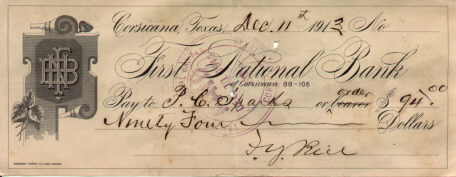 Corsicana, Texas, Dec. 11th 1913 No.
First National Bank
of Corsicana 88-106
order
Pay to or bearer $ 94.00
Ninety Four Dollars